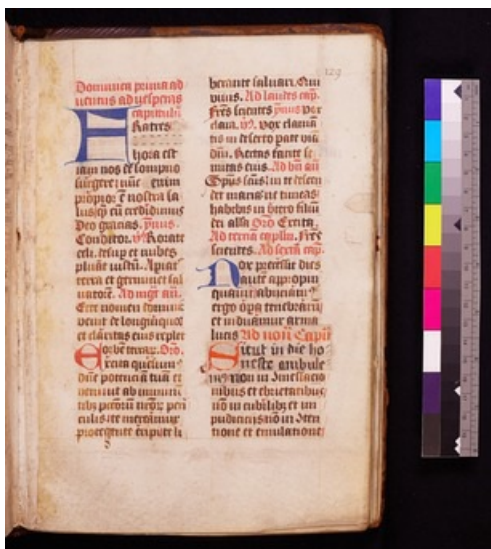 129
Dominica prima ad
uentus ad uesperas
capitulum
Fratres
hora est
iam nos de sompno
surgere nunc enim
propior e nostra sa
lus qm cu credidimus
Deo gracias. ymnus
Conditor. Rorate
celi desup et nubes
pluat iustu. Apiat
terra et germinet sal
uatore. Ad mgt an
Ecce nomen domini
uenit de longinquo et
claritas eius replet
orbe terrar. Oro.
Excita quesum
dne potencia tua et
ueni ut ab iminenti
pctorum nror peri
culis te mereamur
protegente eripi te li
berante saluari. Qui
uiuis. Ad laudes cap.
Fres scientes ymnus Vox
clara. Vox claman
tis in deserto pate via
dni. Rectas facite se
mitas eius. Ad bn an
Spus scus in te descen
det maria ne timeas
habebis in utero filiu
dei alla Oro Excita.
Ad tercia caplm. Fres
scientes. Ad sexta cap.
Nox precessit dies
aute appropin
quauit abiciam
ergo opa tenebraru
et induamur arma
lucis Ad nona Capitu
Sicut in die ho
neste ambule
mus non in comessacio
nibus et ebrietatibus
no in cubilibus et im
pudiciciis no in conten
tione et emulatione